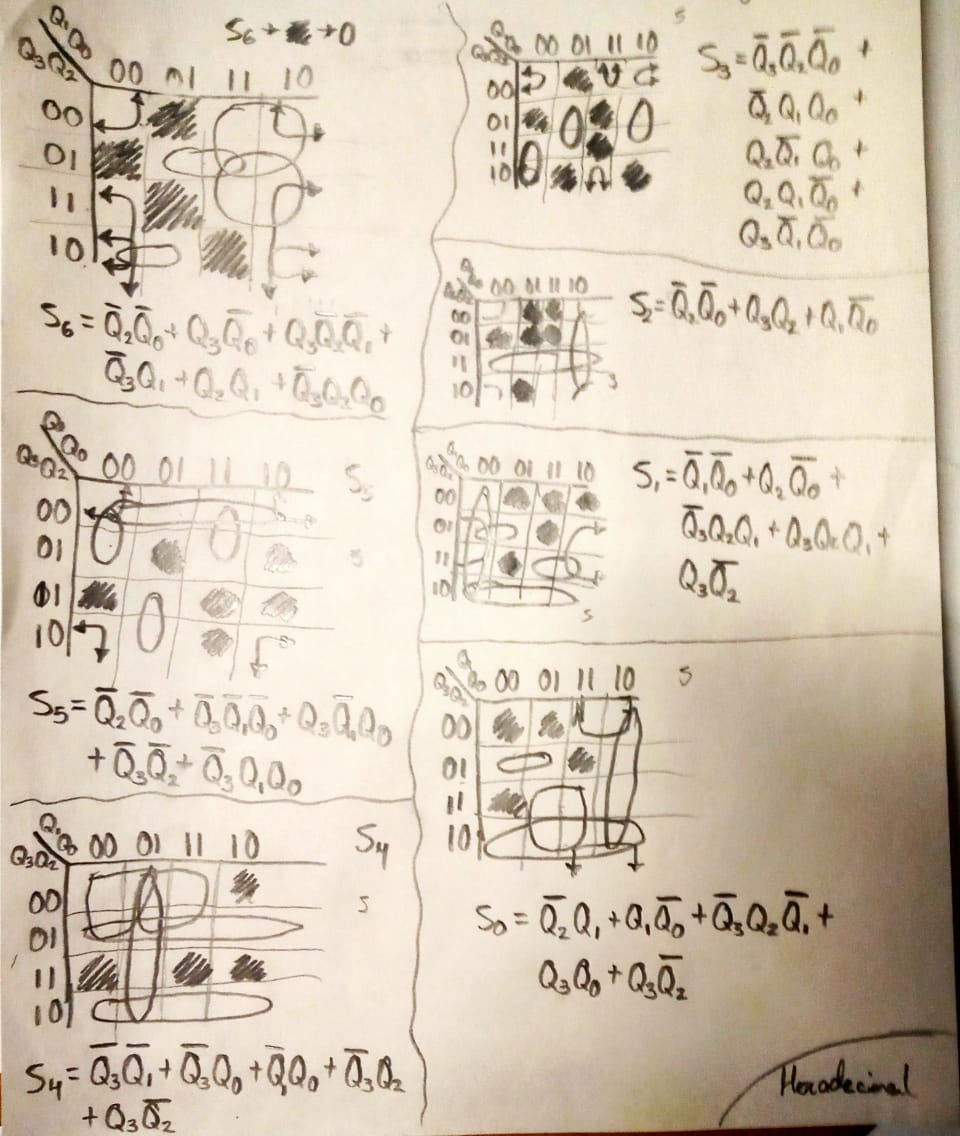 S6 + → 0
Q1Q0
Q3Q2 00 01 11 10
00
01
11
10
S6 = Q̄2Q̄0 + Q3Q̄0 + Q3Q̄2Q̄1 +
Q̄3Q1 + Q2Q1 + Q̄3Q2Q0
Q1Q0
Q3Q2 00 01 11 10
S5
00
01
01
10
S
S5 = Q̄2Q̄0 + Q̄3Q̄1Q̄0 + Q3Q̄1Q0
+ Q̄3Q̄2 + Q̄3Q1Q0
Q1Q0
Q3Q2 00 01 11 10
S4
00
01
11
10
S
S4 = Q̄3Q̄1 + Q̄3Q0 + Q̄1Q0 + Q̄3Q2
+ Q3Q̄2
S
00 01 11 10
00
01
11
10
S3 = Q̄3Q̄2Q̄0 +
Q̄2Q1Q0 +
Q2Q̄1Q0 +
Q2Q1Q̄0 +
Q3Q̄1Q̄0
00 01 11 10
00
01
11
10
S
S2 = Q̄2Q̄0 + Q3Q2 + Q1Q̄0
Q1Q0
Q3Q2 00 01 11 10
00
01
11
10
S
S1 = Q̄1Q̄0 + Q2Q̄0 +
Q̄3Q2Q̄1 + Q3Q2Q1 +
Q3Q̄2
Q1Q0
Q3Q2 00 01 11 10
S
00
01
11
10
S0 = Q̄2Q1 + Q1Q̄0 + Q̄3Q2Q̄1 +
Q3Q0 + Q3Q̄2
Hexadecimal